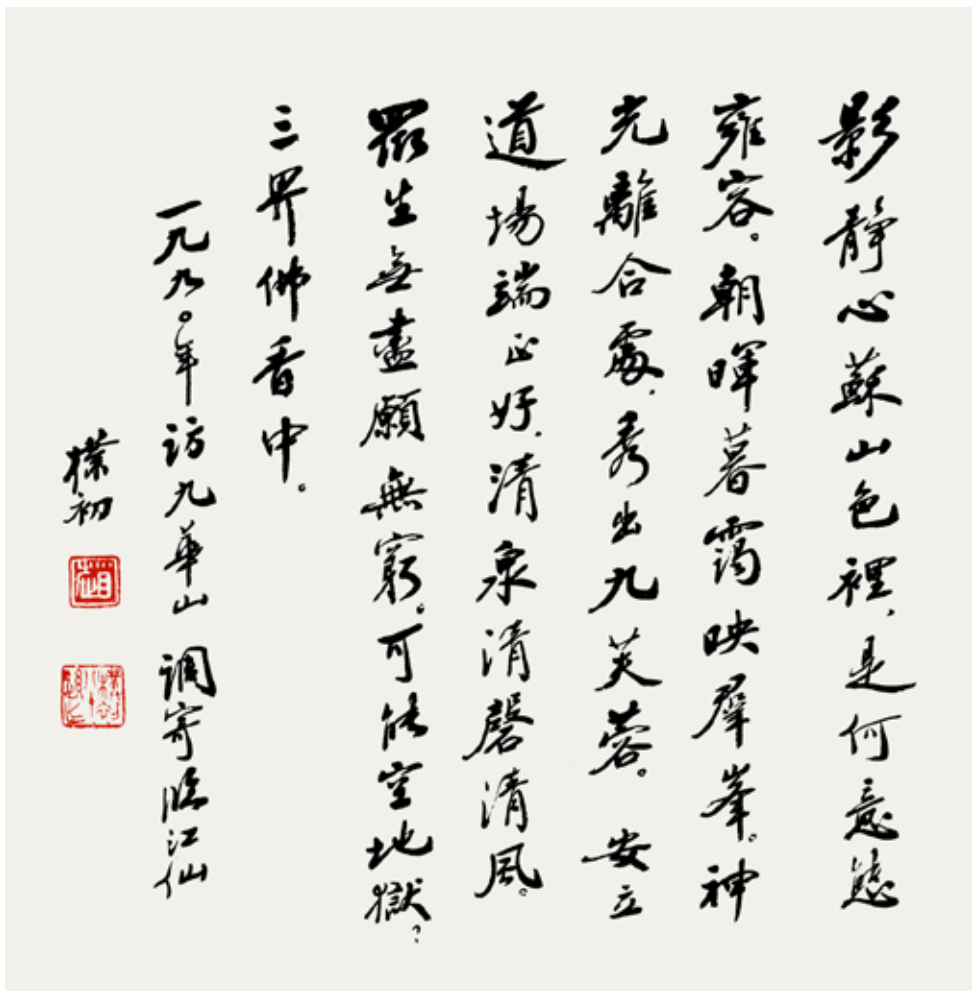 影静心蘇山色裡，是何意態
雍容。朝暉暮靄映羣峯。神
光離合處，秀出九芙蓉。　安立
道場端正好，清泉清磬清風。
眾生無盡願無窮。可能空地獄？
三界佛香中。
一九九〇年访九華山　调寄臨江仙
樸初
趙